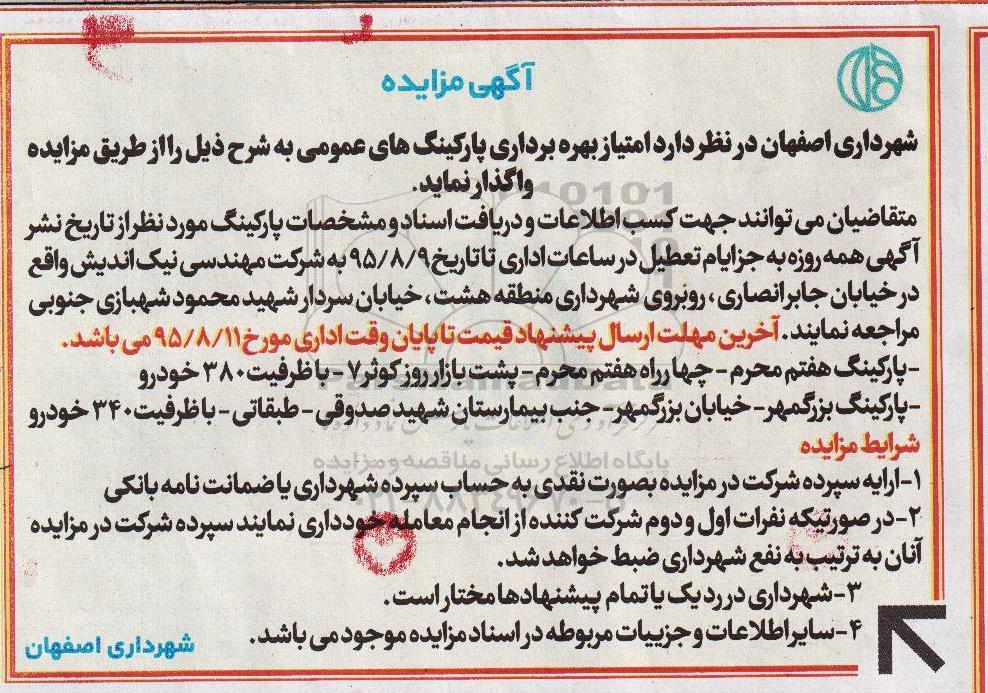 آگهی مزایده
شهرداری اصفهان در نظر دارد امتیاز بهره برداری پارکینگ های عمومی به شرح ذیل را از طریق مزایده
واگذار نماید.
متقاضیان می توانند جهت کسب اطلاعات و دریافت اسناد و مشخصات پارکینگ مورد نظر از تاریخ نشر
آگهی همه روزه به جز ایام تعطیل در ساعات اداری تا تاریخ ۹۵/۸/۹ به شرکت مهندسی نیک اندیش واقع
در خیابان جابر انصاری، روبروی شهرداری منطقه هشت، خیابان سردار شهید محمود شهبازی جنوبی
مراجعه نمایند. آخرین مهلت ارسال پیشنهاد قیمت تا پایان وقت اداری مورخ ۹۵/۸/۱۱ می باشد.
-پارکینگ هفتم محرم - چهارراه هفتم محرم - پشت بازار روز کوثر ۷ - با ظرفیت ۳۸۰ خودرو
-پارکینگ بزرگمهر - خیابان بزرگمهر - جنب بیمارستان شهید صدوقی - طبقاتی - با ظرفیت ۳۴۰ خودرو
شرایط مزایده
پایگاه اطلاع رسانی مناقصه و مزایده
۱-ارایه سپرده شرکت در مزایده بصورت نقدی به حساب سپرده شهرداری یا ضمانت نامه بانکی
۲-در صورتیکه نفرات اول و دوم شرکت کننده از انجام معامله خودداری نمایند سپرده شرکت در مزایده
آنان به ترتیب به نفع شهرداری ضبط خواهد شد.
۳-شهرداری در رد یک یا تمام پیشنهادها مختار است.
۴-سایر اطلاعات و جزییات مربوطه در اسناد مزایده موجود می باشد.
شهرداری اصفهان